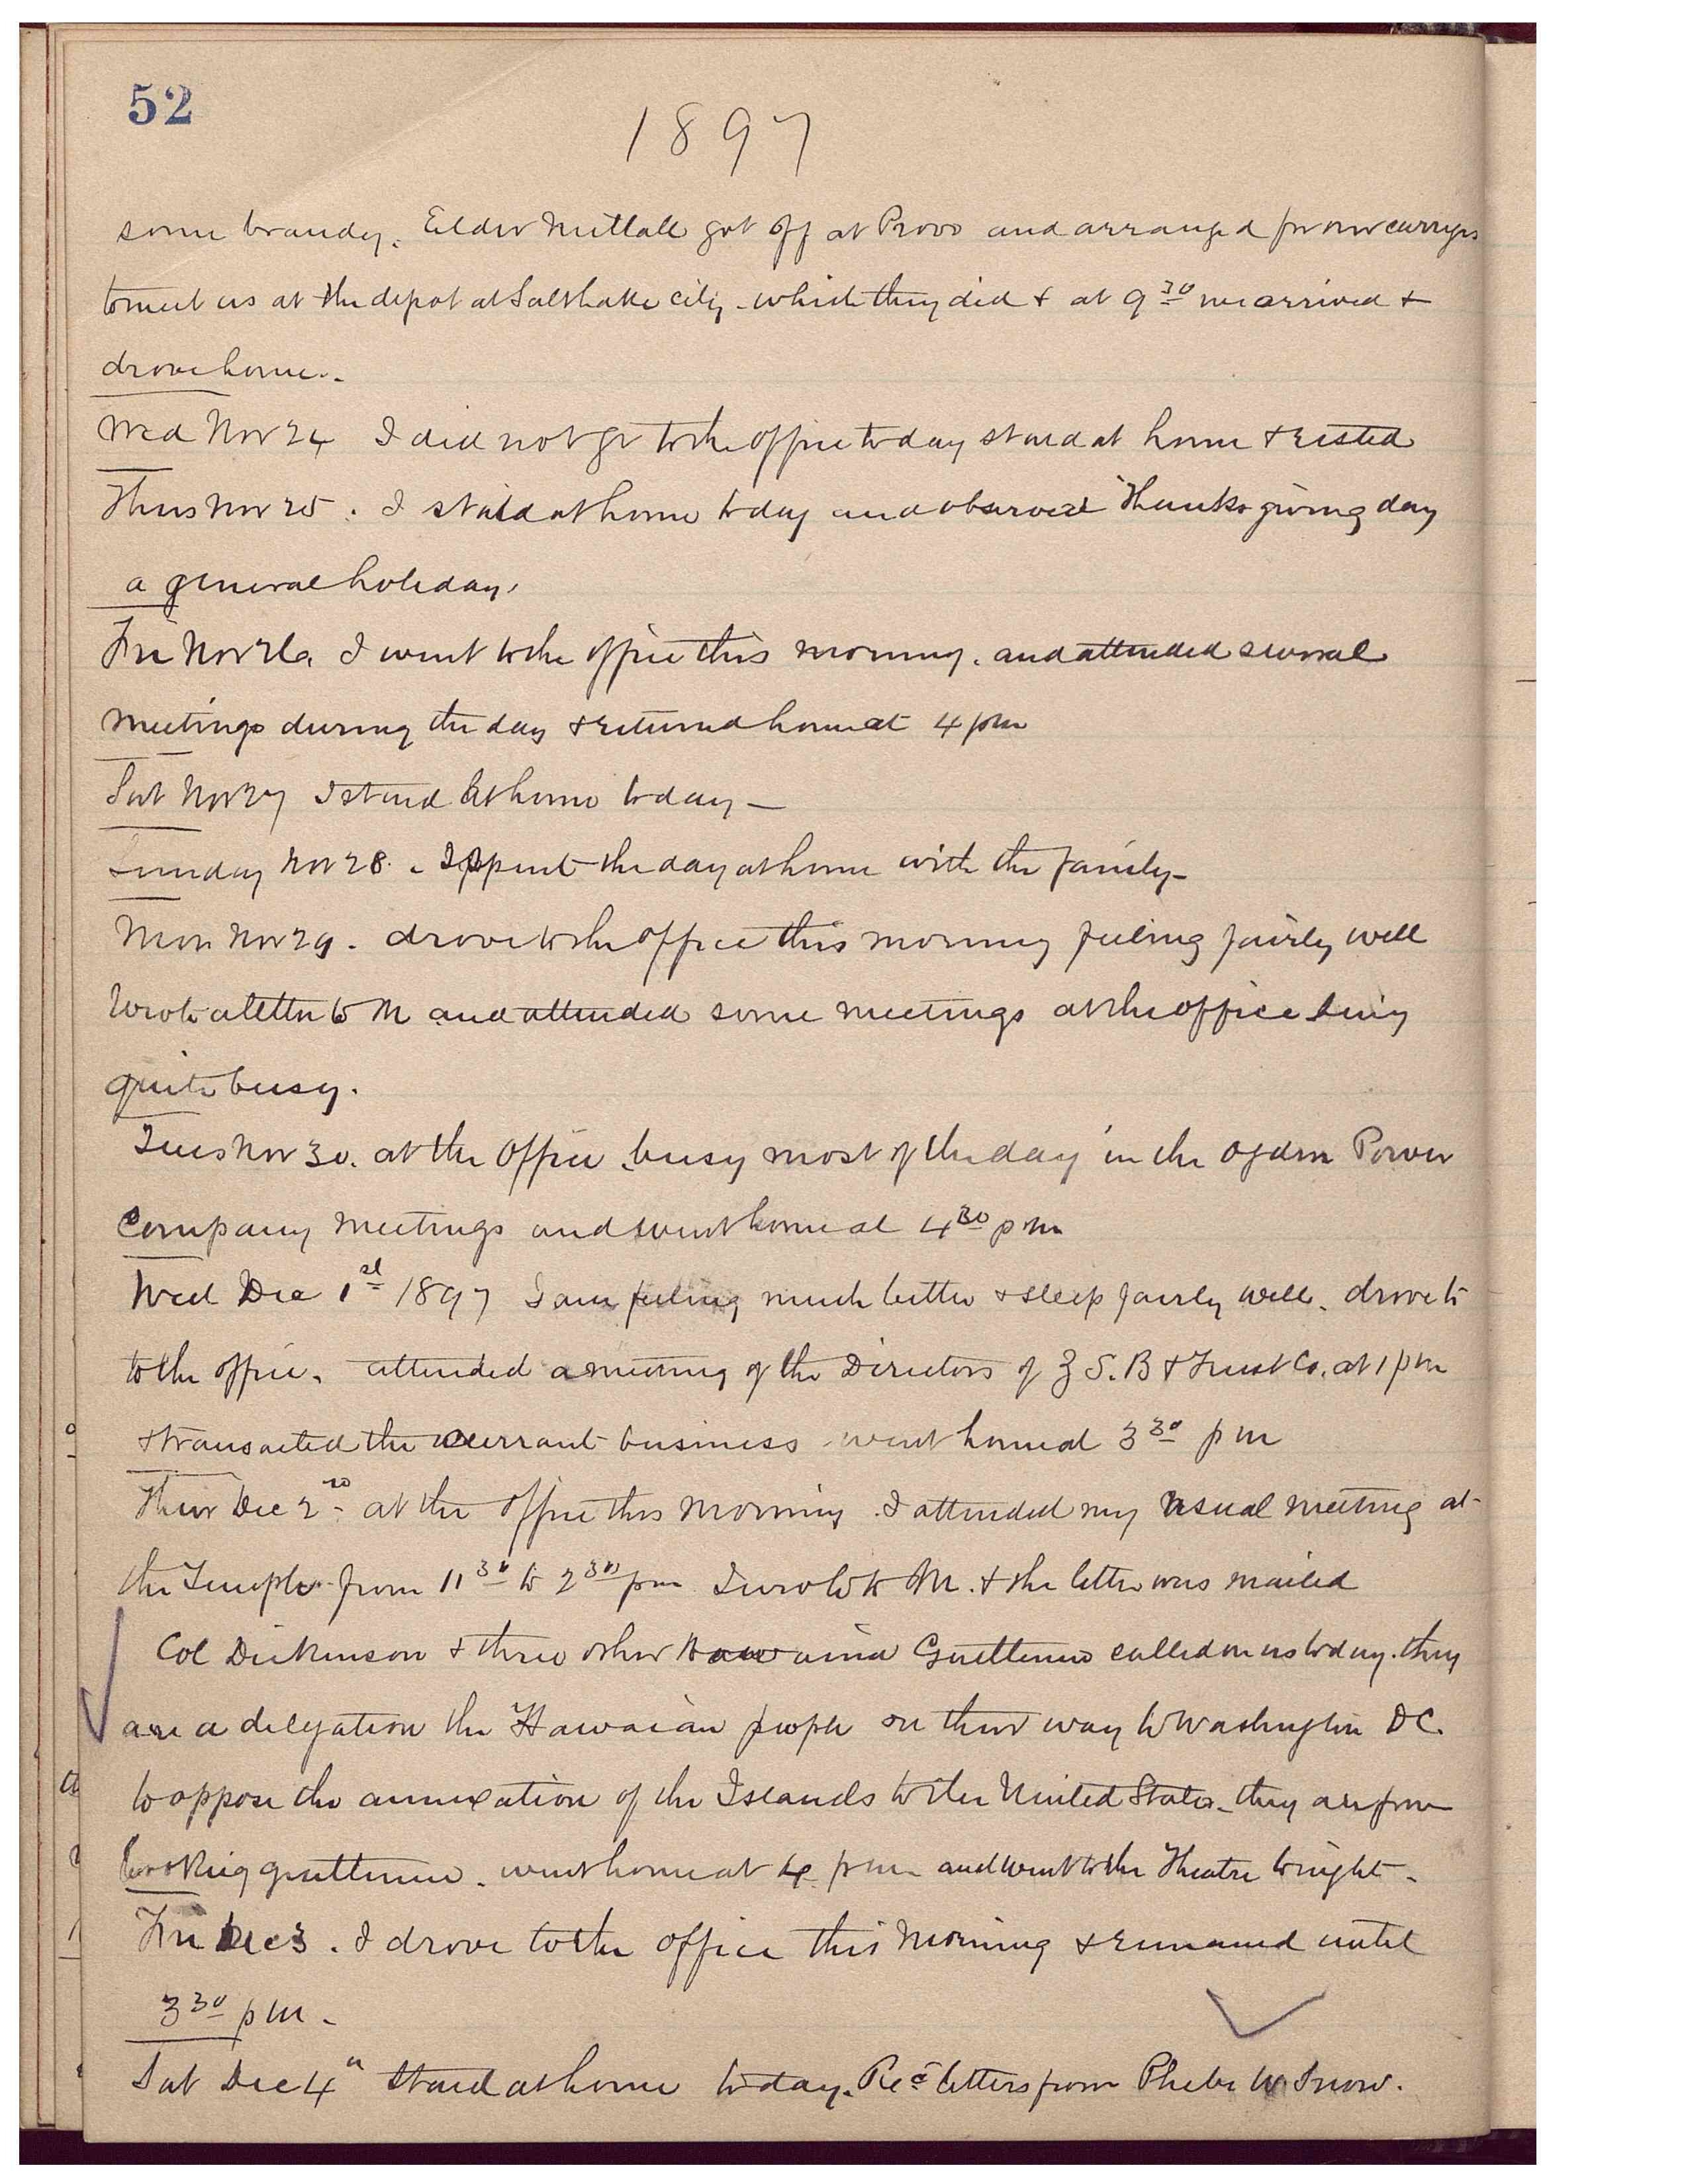 52
1897
some brandy. Elder Nuttall got off at Provo and arranged for our carryges
to meet us at the depot at Salt Lake city - which they did & at 9 30 we arrived &
drove home.
Wed Nov 24 I did not go to the office to day staid at home & rested
Thurs Nov 25. I staid at home to day and observed Thanksgiving day
a general holiday.
Fri Nov 26. I went to the office this morning. and attended several
meetings during the day & returned home at 4 pm
Sat Nov 27 I staid at home to day —
Sunday Nov 28. I spent the day at home with the family -
Mon Nov 29. drove to the office this morning feeling fairly well
Wrote a letter to M and attended some meetings at the office being
quite busy.
Tues Nov 30. at the office busy most of the day in the Ogden Power
Company meetings and went home at 4 30 pm
Wed Dec 1st 1897 I am feeling much better & sleep fairly well. drove to
to the office. attended a meeting of the Directors of Z S. B & Trust Co. at 1 pm
& transacted the currant business went home at 3 30 pm
Thur Dec 2nd at the office this morning. I attended my usual meeting at
the Temple from 11 30 to 2 30 pm I wrote to M. & the letter was mailed
Col Dickinson & three other Hawaiia Gentlemen called on us to day. they
are a delegation the Hawaian people on their way to Washington DC.
to oppose the annexation of the Islands to the United States - they are fine
looking gentlemen. went home at 4 pm and went to the Theatre to night -
Fri Dec 3. I drove to the office this morning & remained until
3 30 pm -
Sat Dec 4" staid at home to day. Recd letters from Phebe W Snow.